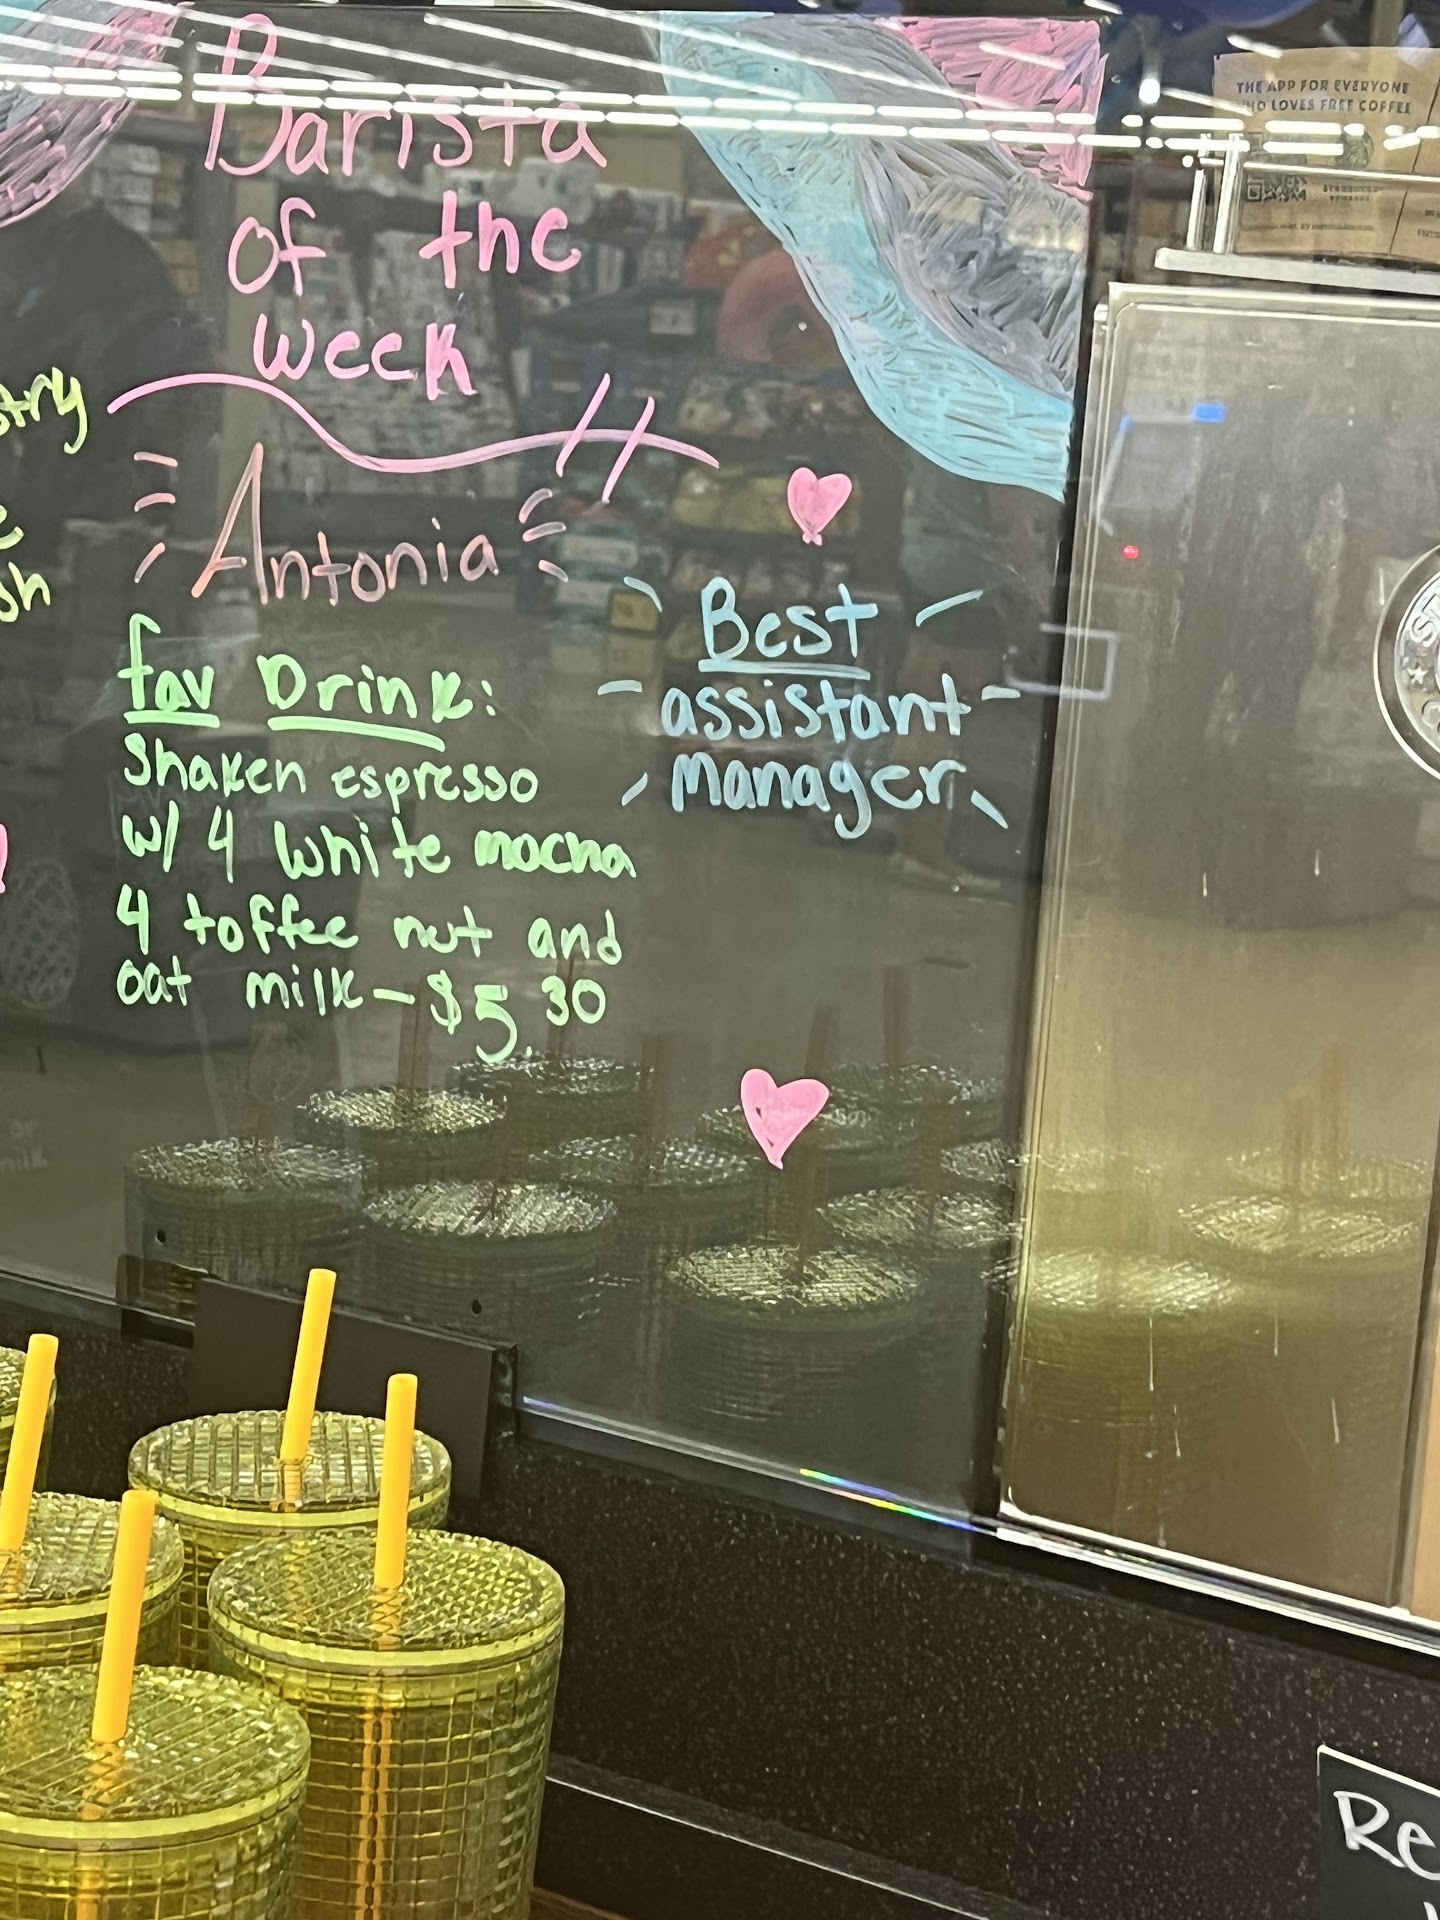 Barista
of the
week
Antonia
fav Drink:
Shaken espresso
w/ 4 white mocha
4 toffee nut and
oat milk - $5.30
Best
assistant
manager
THE APP FOR EVERYONE
WHO LOVES FREE COFFEE